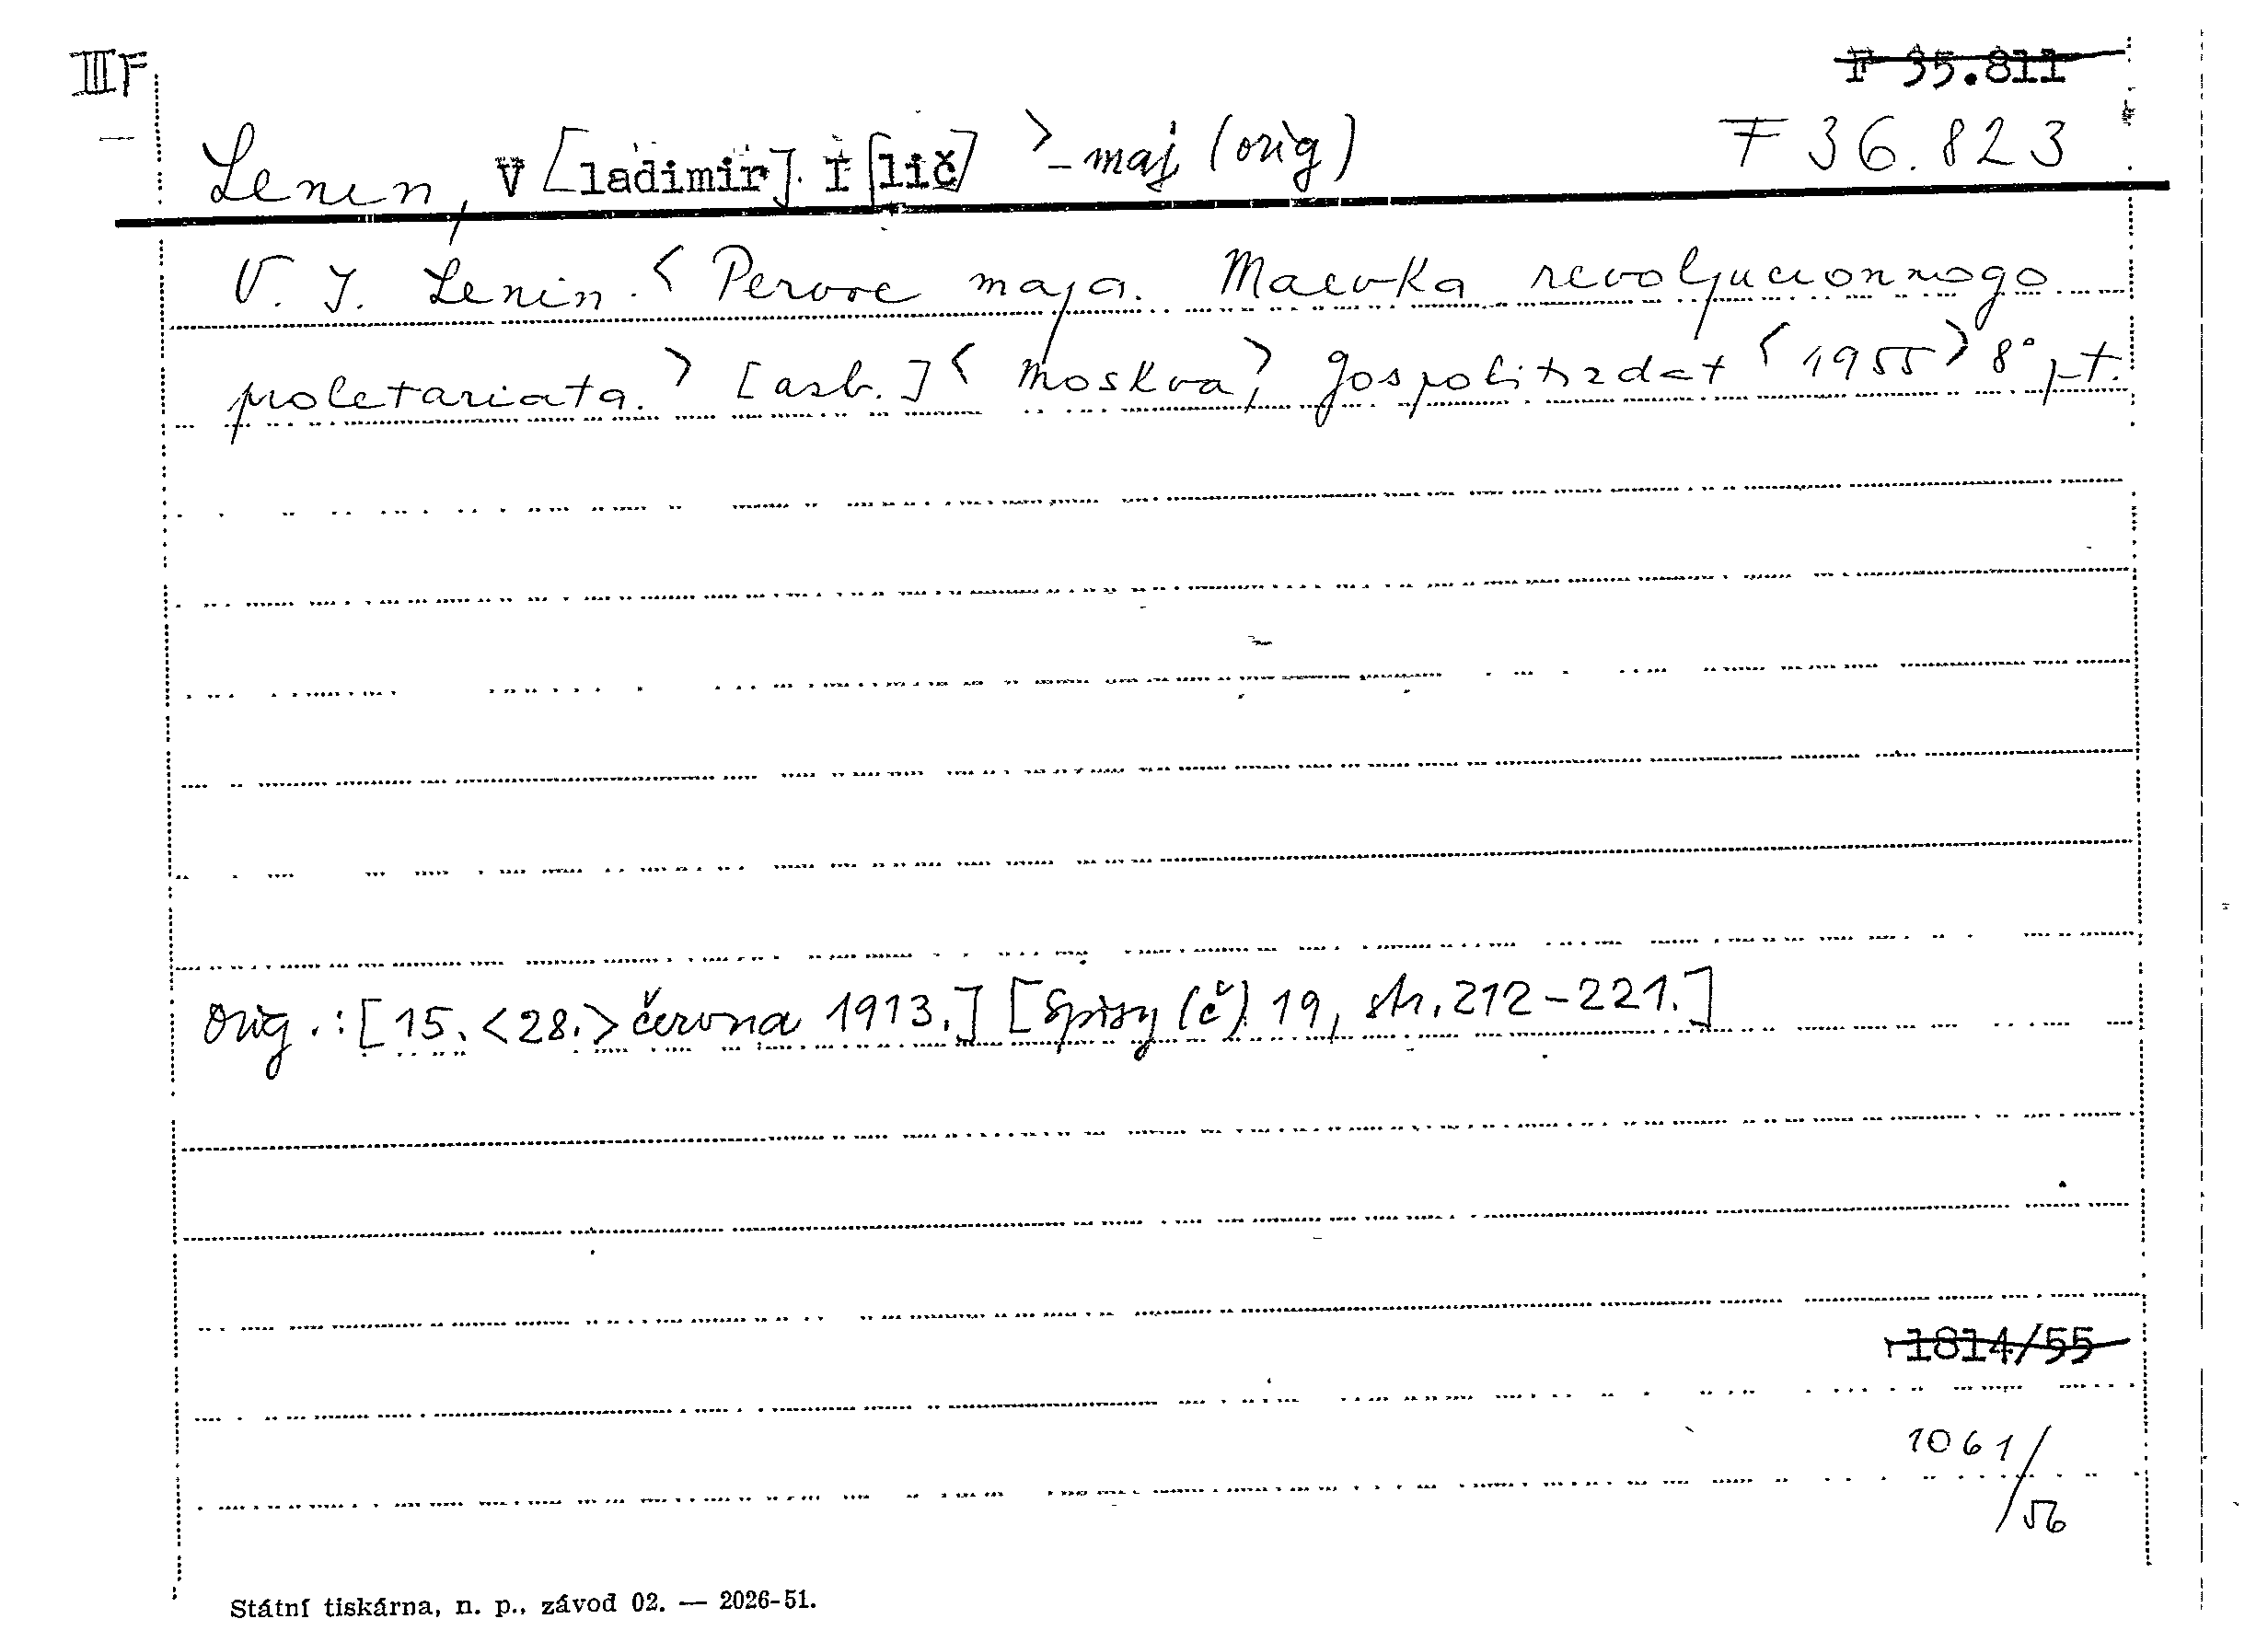 III F
F 35.811
Lenin, V [ladimir] I [lič] >-maj (orig)
F 36.823
V. I. Lenin. < Pervoe maja. Maevka revoljucionnogo
proletariata. > [azb.] < Moskva, > Gospolitizdat < 1955 > 8° pt.
Orig.: [15. <28.> června 1913.] [Spisy (č) 19, str. 212-221.]
1814/55
1061/56
Státní tiskárna, n. p., závod 02. — 2026-51.